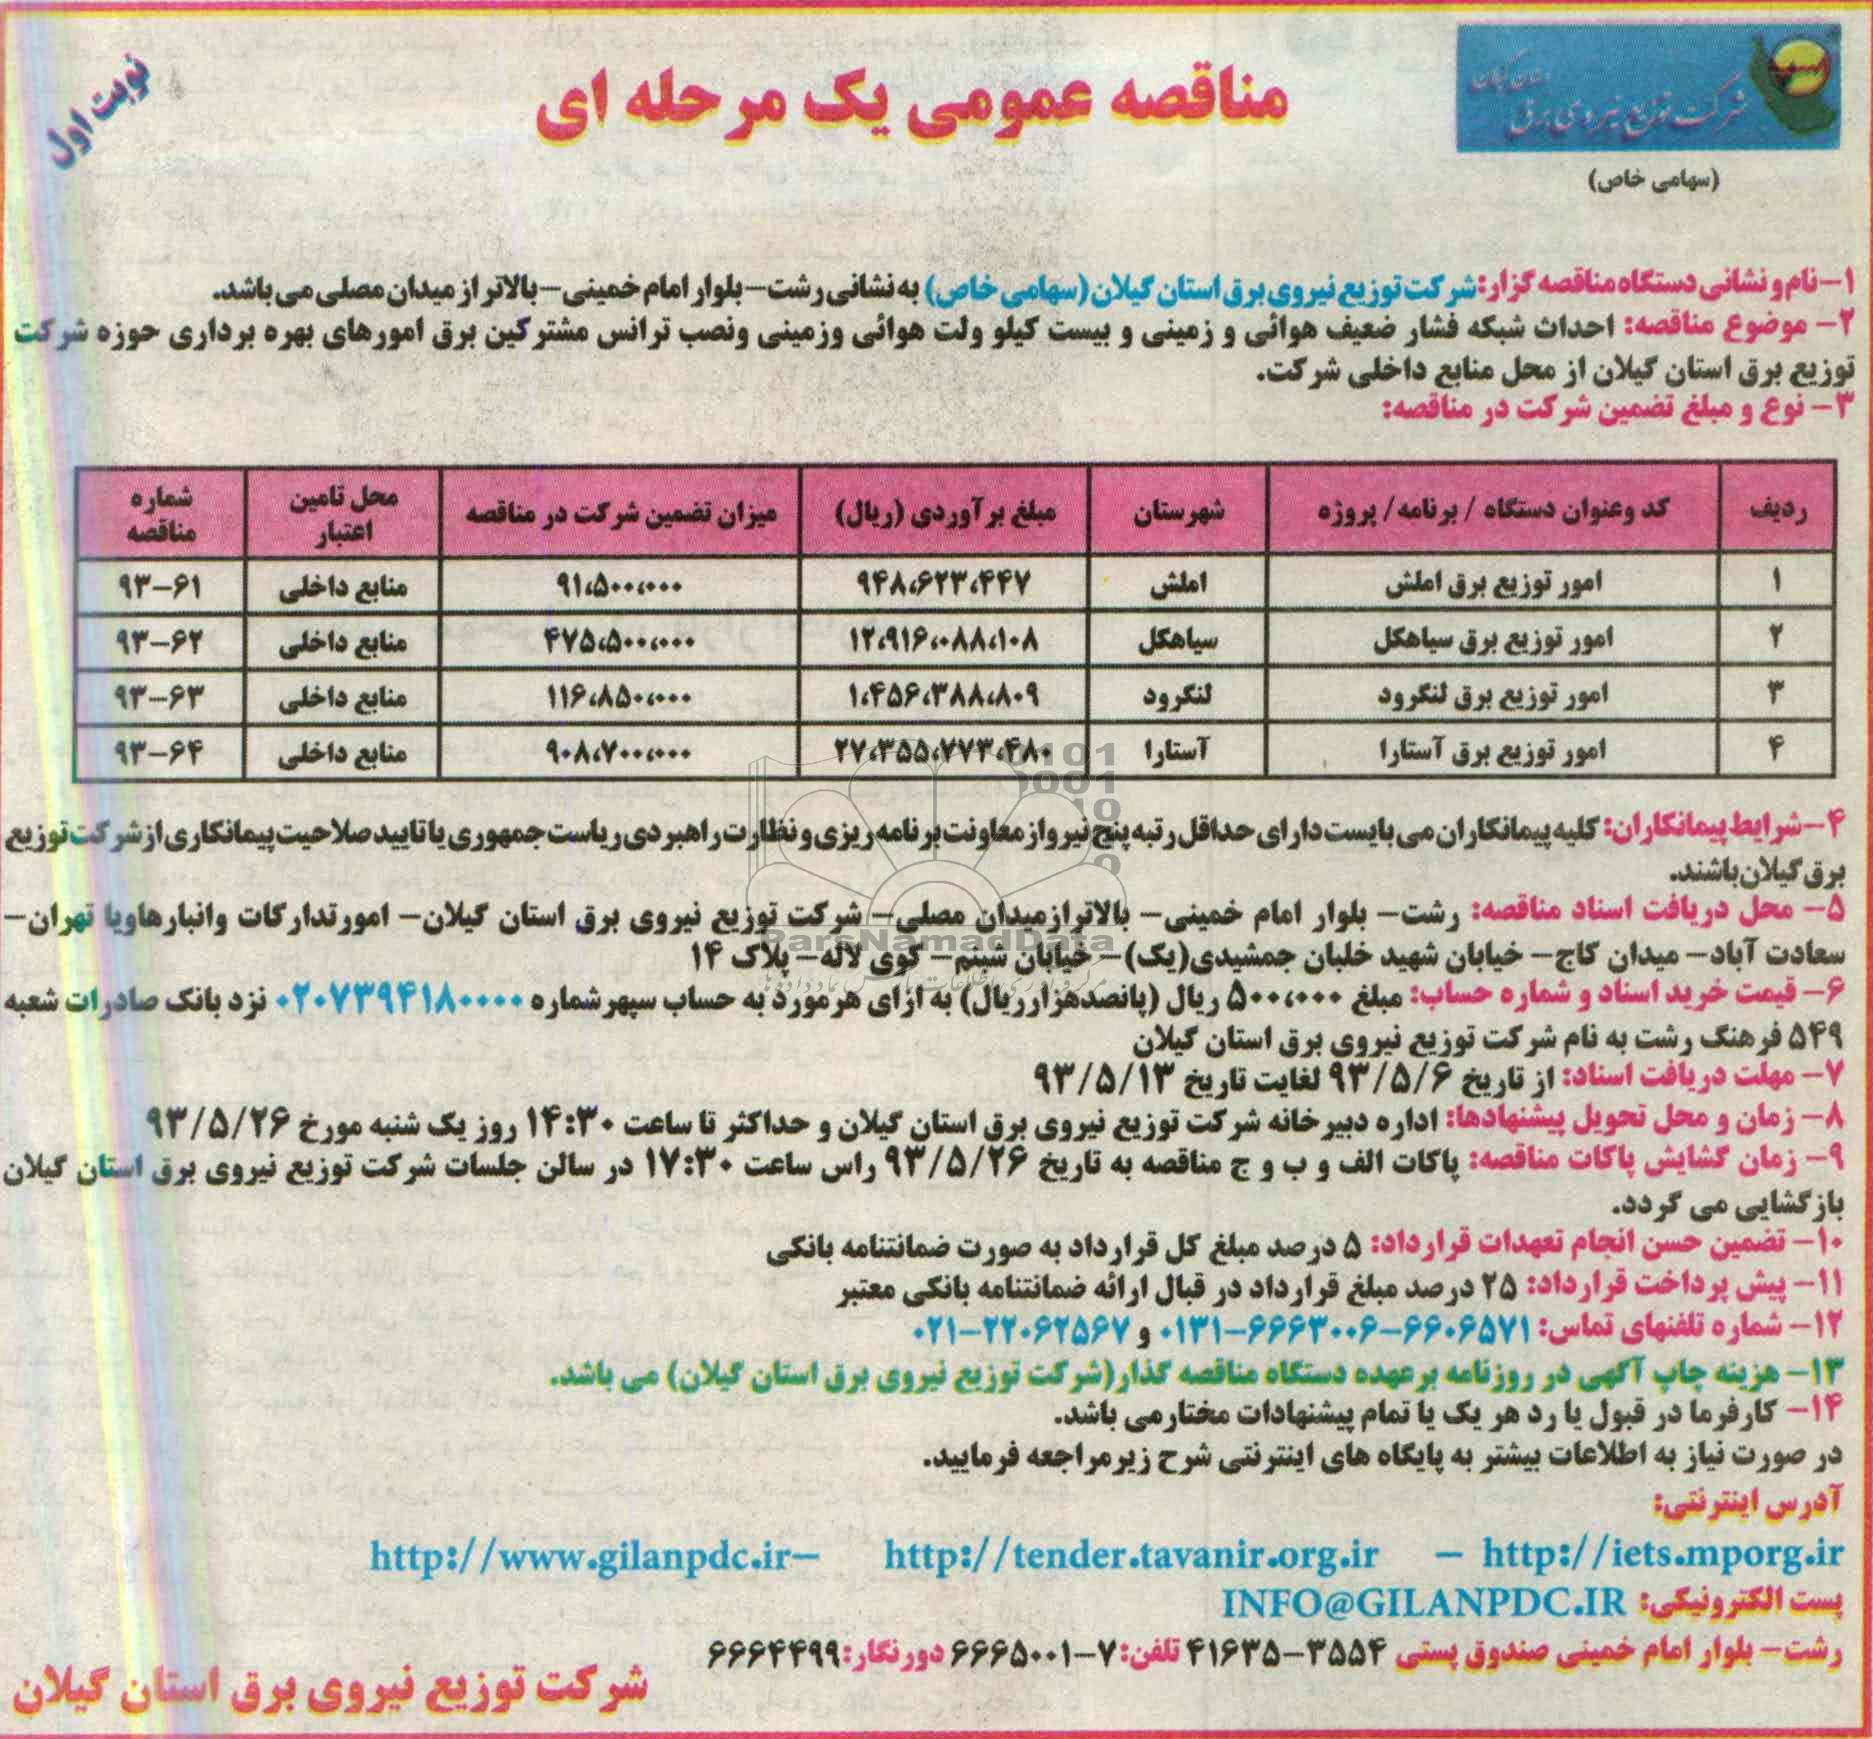 استان گیلان
شرکت توزیع نیروی برق
(سهامی خاص)
مناقصه عمومی یک مرحله ای
نوبت اول
۱- نام و نشانی دستگاه مناقصه گزار: شرکت توزیع نیروی برق استان گیلان (سهامی خاص) به نشانی رشت- بلوار امام خمینی- بالاتر از میدان مصلی می باشد.
۲- موضوع مناقصه: احداث شبکه فشار ضعیف هوائی و زمینی و بیست کیلو ولت هوائی وزمینی ونصب ترانس مشترکین برق امورهای بهره برداری حوزه شرکت
توزیع برق استان گیلان از محل منابع داخلی شرکت.
۳- نوع و مبلغ تضمین شرکت در مناقصه:
ردیف | کد وعنوان دستگاه / برنامه/ پروژه | شهرستان | مبلغ برآوردی (ریال) | میزان تضمین شرکت در مناقصه | محل تامین اعتبار | شماره مناقصه
۱ | امور توزیع برق املش | املش | ۹۴۸،۶۲۳،۴۴۷ | ۹۱،۵۰۰،۰۰۰ | منابع داخلی | ۹۳-۶۱
۲ | امور توزیع برق سیاهکل | سیاهکل | ۱۲،۹۱۶،۰۸۸،۱۰۸ | ۴۷۵،۵۰۰،۰۰۰ | منابع داخلی | ۹۳-۶۲
۳ | امور توزیع برق لنگرود | لنگرود | ۱،۴۵۶،۳۸۸،۸۰۹ | ۱۱۶،۸۵۰،۰۰۰ | منابع داخلی | ۹۳-۶۳
۴ | امور توزیع برق آستارا | آستارا | ۲۷،۳۵۵،۷۷۳،۴۸۰ | ۹۰۸،۷۰۰،۰۰۰ | منابع داخلی | ۹۳-۶۴
۴- شرایط پیمانکاران: کلیه پیمانکاران می بایست دارای حداقل رتبه پنج نیرو از معاونت برنامه ریزی و نظارت راهبردی ریاست جمهوری یا تایید صلاحیت پیمانکاری از شرکت توزیع
برق گیلان باشند.
۵- محل دریافت اسناد مناقصه: رشت- بلوار امام خمینی- بالاترازمیدان مصلی- شرکت توزیع نیروی برق استان گیلان- امورتدارکات وانبارهاویا تهران-
سعادت آباد- میدان کاج- خیابان شهید خلبان جمشیدی(یک)- خیابان شبنم- کوی لاله- پلاک ۱۴
ParsNamadData
۶- قیمت خرید اسناد و شماره حساب: مبلغ ۵۰۰،۰۰۰ ریال (پانصدهزارریال) به ازای هرمورد به حساب سپهرشماره ۰۲۰۷۳۹۴۱۸۰۰۰۰ نزد بانک صادرات شعبه
۵۴۹ فرهنگ رشت به نام شرکت توزیع نیروی برق استان گیلان
۷- مهلت دریافت اسناد: از تاریخ ۹۳/۵/۶ لغایت تاریخ ۹۳/۵/۱۳
۸- زمان و محل تحویل پیشنهادها: اداره دبیرخانه شرکت توزیع نیروی برق استان گیلان و حداکثر تا ساعت ۱۴:۳۰ روز یک شنبه مورخ ۹۳/۵/۲۶
۹- زمان گشایش پاکات مناقصه: پاکات الف و ب و ج مناقصه به تاریخ ۹۳/۵/۲۶ راس ساعت ۱۷:۳۰ در سالن جلسات شرکت توزیع نیروی برق استان گیلان
بازگشایی می گردد.
۱۰- تضمین حسن انجام تعهدات قرارداد: ۵ درصد مبلغ کل قرارداد به صورت ضمانتنامه بانکی
۱۱- پیش پرداخت قرارداد: ۲۵ درصد مبلغ قرارداد در قبال ارائه ضمانتنامه بانکی معتبر
۱۲- شماره تلفنهای تماس: ۶۶۰۶۵۷۱-۶۶۶۳۰۰۶-۰۱۳۱ و ۲۲۰۶۲۵۶۷-۰۲۱
۱۳- هزینه چاپ آگهی در روزنامه برعهده دستگاه مناقصه گذار(شرکت توزیع نیروی برق استان گیلان) می باشد.
۱۴- کارفرما در قبول یا رد هر یک یا تمام پیشنهادات مختارمی باشد.
در صورت نیاز به اطلاعات بیشتر به پایگاه های اینترنتی شرح زیرمراجعه فرمایید.
آدرس اینترنتی:
http://iets.mporg.ir – http://tender.tavanir.org.ir http://www.gilanpdc.ir–
پست الکترونیکی: INFO@GILANPDC.IR
رشت- بلوار امام خمینی صندوق پستی ۳۵۵۴-۴۱۶۳۵ تلفن: ۷-۶۶۶۵۰۰۱ دورنگار: ۶۶۶۴۴۹۹
شرکت توزیع نیروی برق استان گیلان